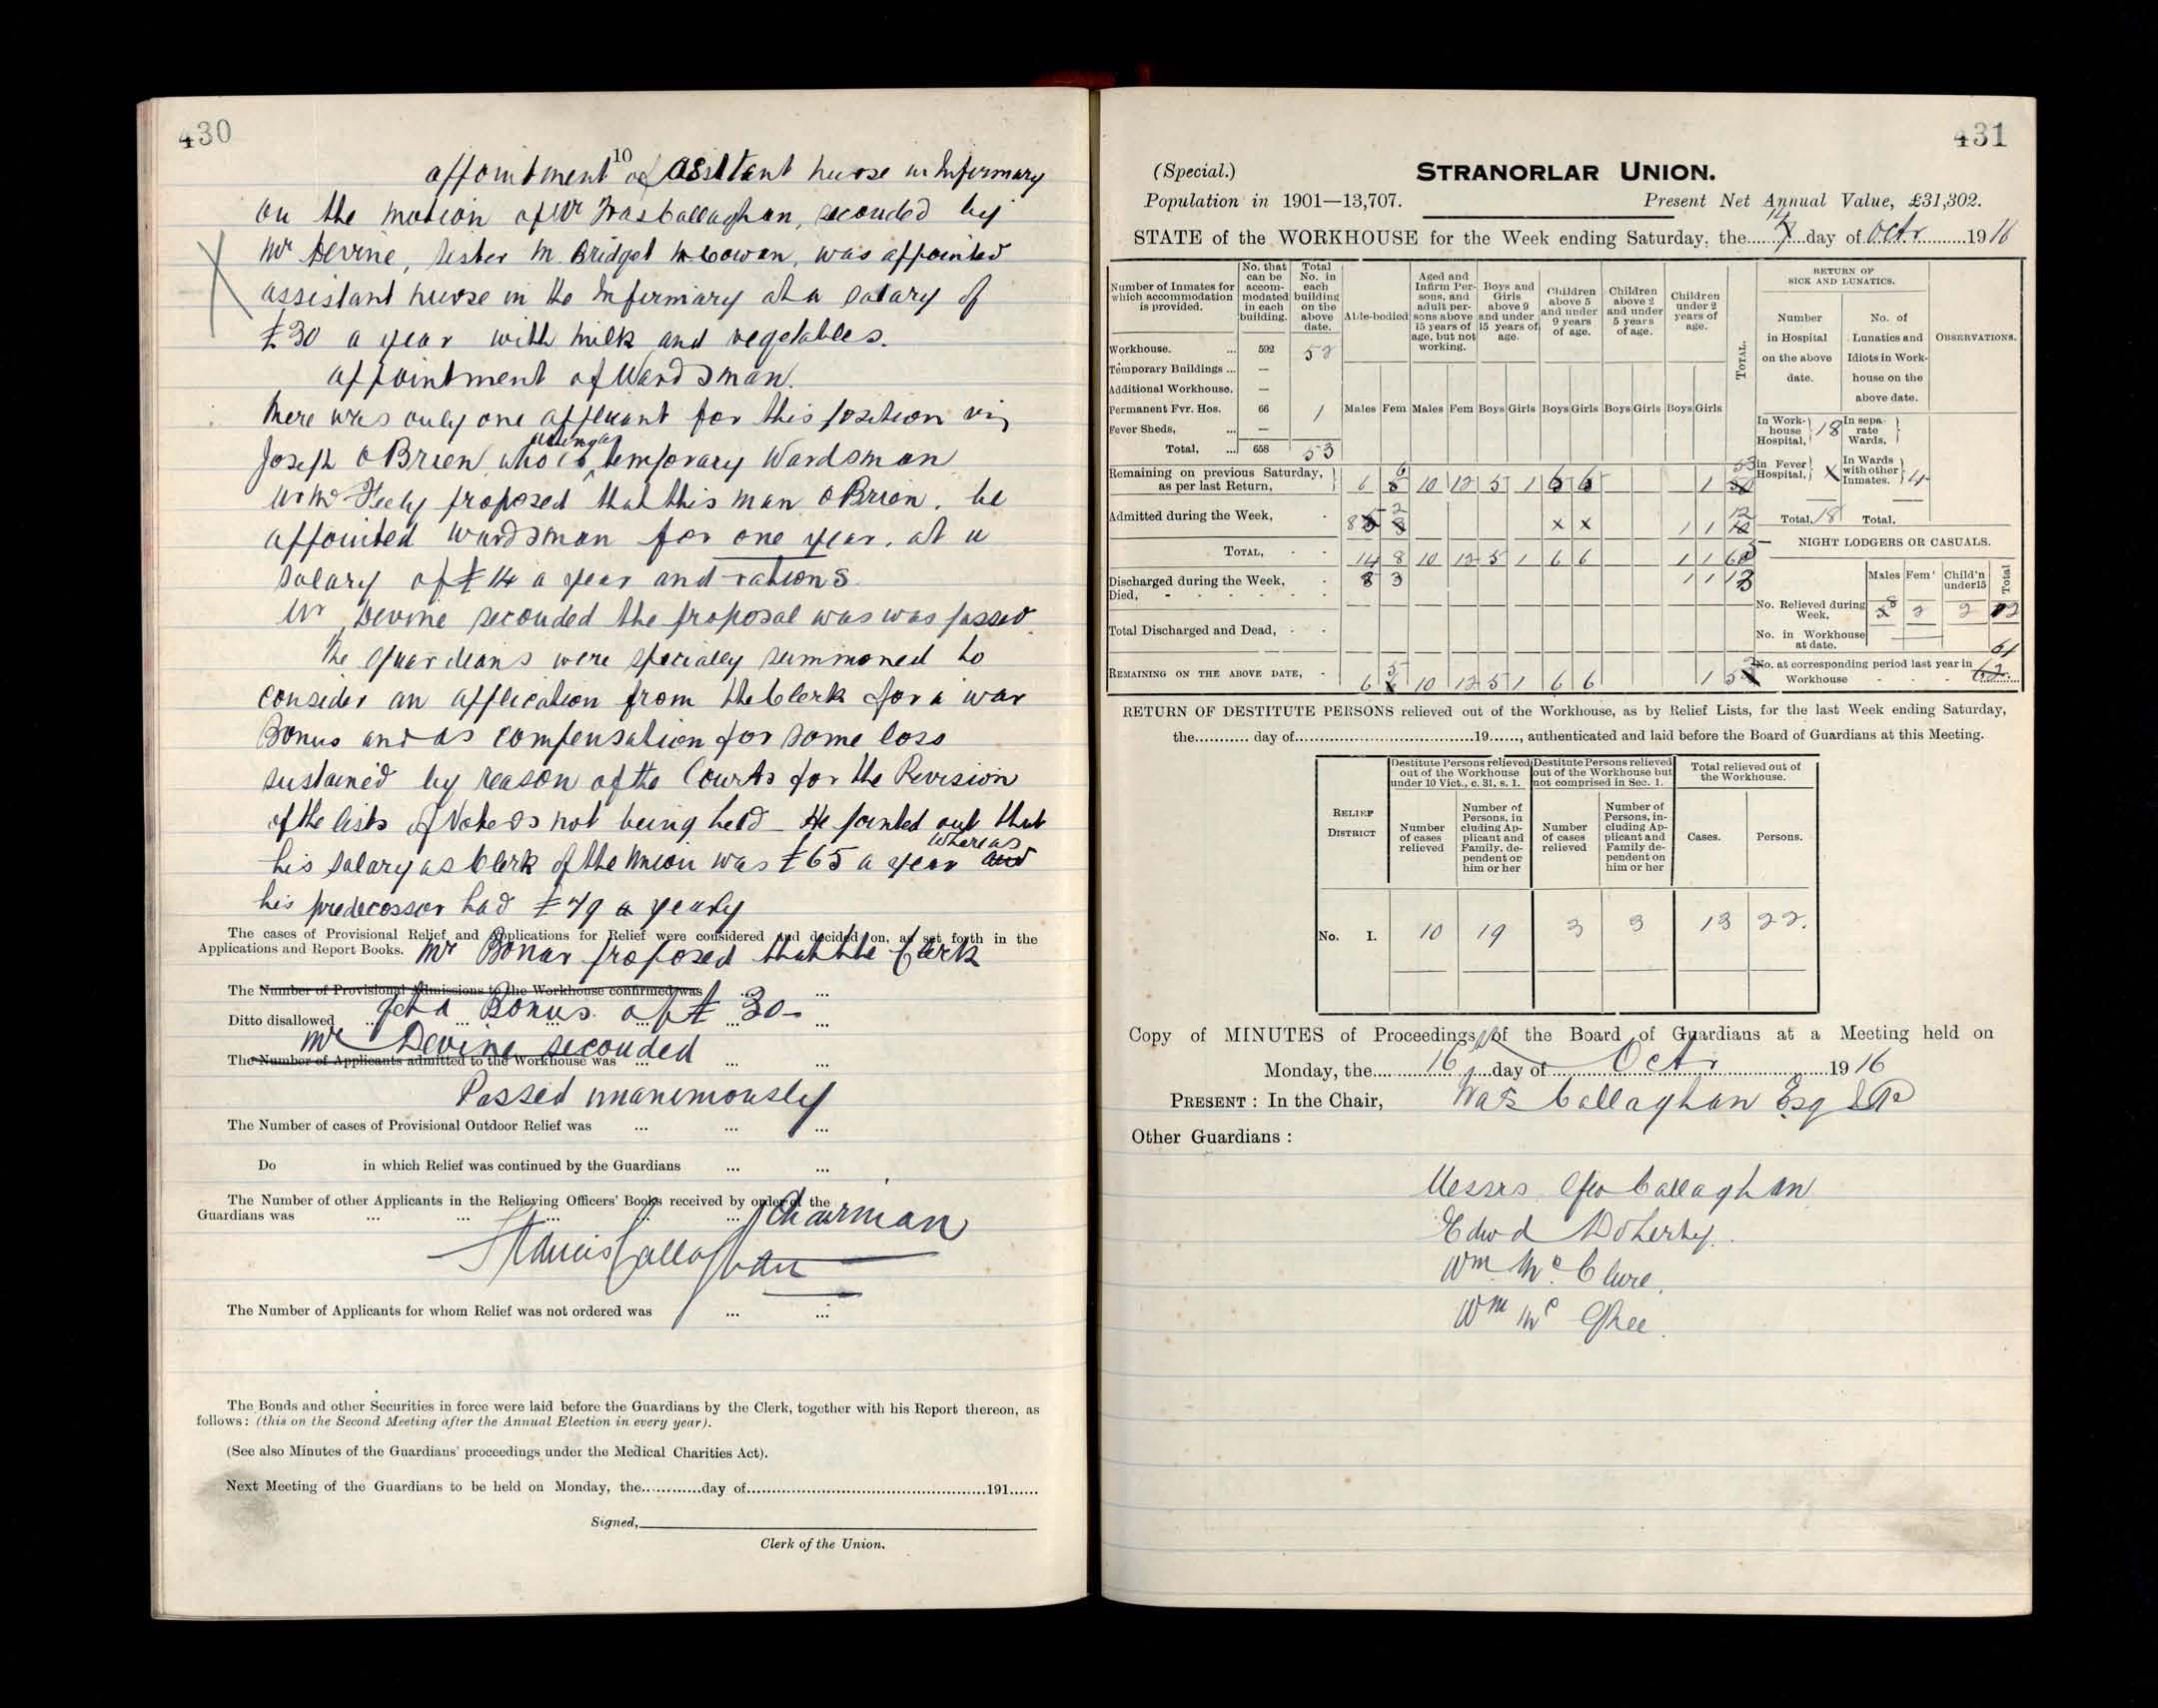 430
10
appointment of assitant nurse in Infirmary
on the motion of Mr Fras Callaghan, seconded by
Mr Devine, Sister M. Bridget McCowan, was appointed
assistant nurse in the Infirmiary at a salary of
£30 a year with milk and vegetables.
appointment of Wardsman.
There was only one applicant for this position viz
Joseph O'Brien who is acting as temporary Wardsman
Mr McFeely proposed that this man O'Brien, be
appointed wardsman for one year, at a
salary of £14 a year and rations
Mr Devine seconded the proposal was was passed
The guardians were specially summoned to
consider an application from the Clerk for a war
Bonus and as compensation for some loss
sustained by reason of the Courts for the Revision
of the lists of Voters not being held. He pointed out that
his salary as Clerk of the Union was £65 a year whereas
his predecessor had £79 a yearly
The cases of Provisional Relief and Applications for Relief were considered and decided on, as set forth in the
Applications and Report Books. Mr Bonar proposed that the Clerk
The Number of Provisional Admissions to the Workhouse confirmed was
Ditto disallowed get a Bonus of £30-
Mr Devine seconded
The Number of Applicants admitted to the Workhouse was
Passed unanimously
The Number of cases of Provisional Outdoor Relief was
Do in which Relief was continued by the Guardians
The Number of other Applicants in the Relieving Officers' Books received by order of the
Guardians was
Francis Callaghan Chairman
The Number of Applicants for whom Relief was not ordered was
The Bonds and other Securities in force were laid before the Guardians by the Clerk, together with his Report thereon, as
follows: (this on the Second Meeting after the Annual Election in every year).
(See also Minutes of the Guardians' proceedings under the Medical Charities Act).
Next Meeting of the Guardians to be held on Monday, the............day of................................................191......
Signed,
Clerk of the Union.
431
(Special.) STRANORLAR UNION.
Population in 1901—13,707. Present Net Annual Value, £31,302.
STATE of the WORKHOUSE for the Week ending Saturday, the 14 day of Octr 1916
Number of Inmates for which accommodation is provided.
No. that can be accommodated in each building.
Total No. in each building on the above date.
Able-bodied
Aged and Infirm Persons, and adult persons above 15 years of age, but not working.
Boys and Girls above 9 and under 15 years of age.
Children above 5 and under 9 years of age.
Children above 2 and under 5 years of age.
Children under 2 years of age.
TOTAL.
RETURN OF SICK AND LUNATICS.
Number in Hospital on the above date.
No. of Lunatics and Idiots in Workhouse on the above date.
OBSERVATIONS.
Workhouse. ... 592 52
Temporary Buildings ... —
Additional Workhouse. —
Permanent Fvr. Hos. 66 1
Fever Sheds, ... —
Total, ... 658 53
Males Fem Males Fem Boys Girls Boys Girls Boys Girls Boys Girls
In Workhouse Hospital, 18 In separate Wards,
In Fever Hospital, x In Wards with other Inmates. 4
Total, 18 Total,
Remaining on previous Saturday, as per last Return, 6 6 10 12 5 1 6 6 1 53
Admitted during the Week, 8 2 x x 1 1 12
TOTAL, 14 8 10 12 5 1 6 6 1 1 65
Discharged during the Week, 8 3 1 1 13
Died,
Total Discharged and Dead,
REMAINING ON THE ABOVE DATE, 6 5 10 12 5 1 6 6 1 52
NIGHT LODGERS OR CASUALS.
Males Fem' Child'n under 15 Total
No. Relieved during Week, 8 2 2 12
No. in Workhouse at date.
No. at corresponding period last year in Workhouse 61
RETURN OF DESTITUTE PERSONS relieved out of the Workhouse, as by Relief Lists, for the last Week ending Saturday,
the........... day of.......................................19......, authenticated and laid before the Board of Guardians at this Meeting.
RELIEF DISTRICT
Destitute Persons relieved out of the Workhouse under 10 Vict., c. 31, s. 1.
Destitute Persons relieved out of the Workhouse but not comprised in Sec. 1.
Total relieved out of the Workhouse.
Number of cases relieved
Number of Persons, in cluding Applicant and Family. dependent on him or her
Number of cases relieved
Number of Persons, including Applicant and Family dependent on him or her
Cases.
Persons.
No. I. 10 19 3 3 13 22.
Copy of MINUTES of Proceedings of the Board of Guardians at a Meeting held on
Monday, the 16 day of Octr 1916
PRESENT: In the Chair, Fras Callaghan Esq JP
Other Guardians:
Messrs Geo Callaghan
Edwd Doherty.
Wm McClure,
Wm McGhee.